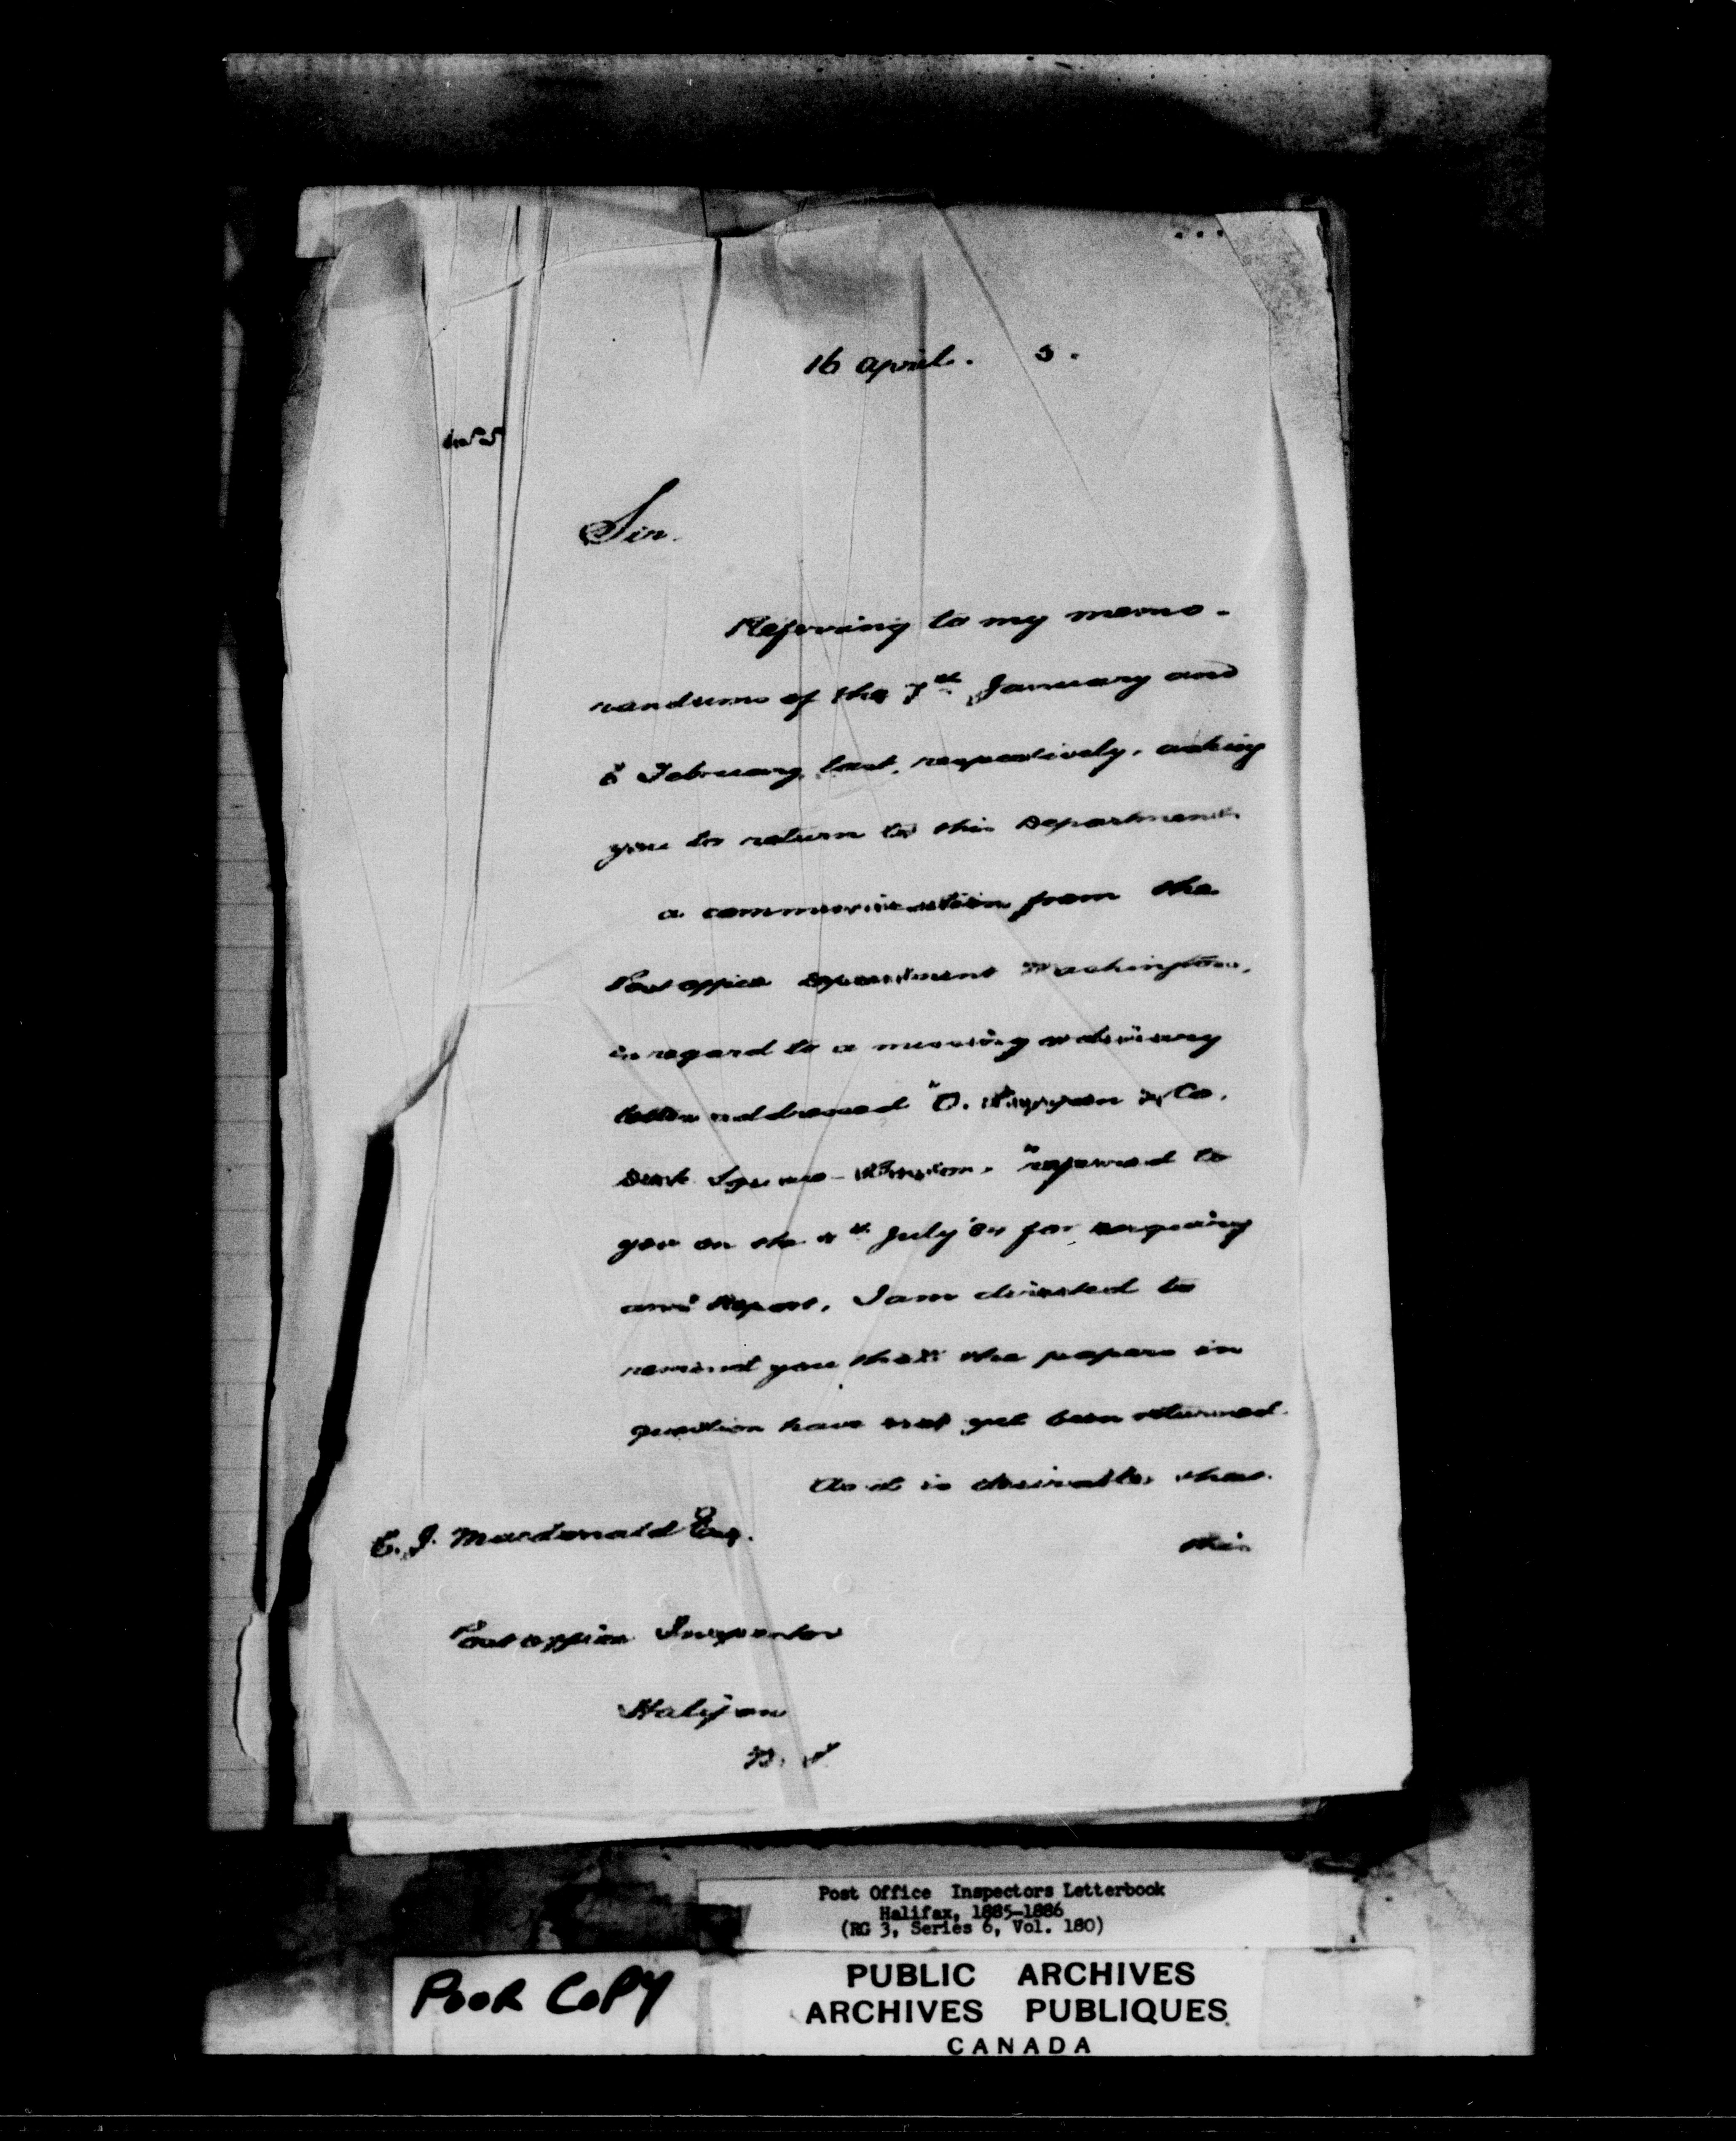 16 April. 5.
Sir.
Referring to my memo-
randums of the 7th January and
6 February last, respectively, asking
you to return to this Department
a communication from the
Post Office Department Washington,
in regard to a missing ordinary
letter addressed "O. & Co.
referred to
you on the July '84 for enquiry
and Report, I am directed to
remind you that the papers in
question have not yet been returned.
As it is desirable that
this
C. J. Macdonald Esq.
Post Office Inspector
Halifax
N. S
Post Office Inspectors Letterbook
Halifax, 1885-1886
(RG 3, Series 6, Vol. 180)
POOR COPY
PUBLIC ARCHIVES
ARCHIVES PUBLIQUES
CANADA